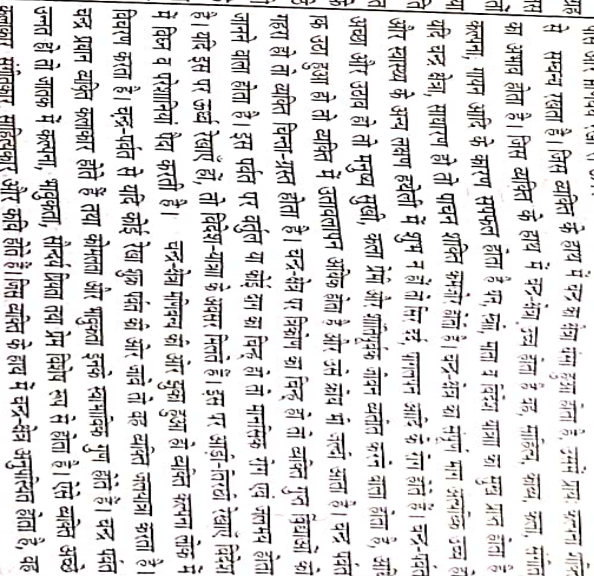 से सम्बन्ध रखता है। जिस व्यक्ति के हाथ में चन्द्र का क्षेत्र दबा हुआ होता है, उसमें प्रायः कल्पना शक्ति
का अभाव होता है। जिस व्यक्ति के हाथ में चन्द्र-क्षेत्र उच्च होता है वह, साहित्य, काव्य कला, संगीत
कल्पना, गायन आदि के कारण सफल होता है पर, स्त्री, माता व विदेश यात्रा का सुख प्राप्त होता है
यदि चन्द्र क्षेत्र, साधारण हो तो पाचन शक्ति कमजोर होती है। चन्द्र-क्षेत्र का सम्पूर्ण भाग अत्यधिक उच्च हो
और स्वास्थ्य के अन्य लक्षण हथेली में शुभ न हों तो सिर दर्द, पागलपन आदि के रोग होते हैं। चन्द्र-पर्वत
अच्छा और उठाव हो तो मनुष्य सुखी, कला प्रेमी और शान्तिपूर्वक जीवन व्यतीत करने वाला होता है, अति
उठा हुआ हो तो व्यक्ति में उतावलापन अधिक होता है और उसे क्रोध भी जल्दी आता है। चन्द्र पर्वत
गहरा हो तो व्यक्ति चिन्ता-ग्रस्त होता है। चन्द्र-क्षेत्र पर त्रिकोण का चिन्ह हो तो व्यक्ति गुप्त विद्याओं को
जानने वाला होता है। इस पर्वत पर वर्तुल या कोई द्वीप का चिन्ह हो तो मानसिक रोग एवं जलभय होता
है। यदि इस पर ऊर्ध्व रेखाएं हों, तो विदेश-यात्रा के अवसर मिलते हैं। इस पर आड़ी-तिरछी रेखाएं विदेश
में विघ्न व परेशानियां पैदा करती है। चन्द्र-क्षेत्र मणिबन्ध की ओर झुका हुआ हो व्यक्ति कल्पना लोक में
विचरण करता है। चन्द्र-पर्वत से यदि कोई रेखा बुध पर्वत की ओर जाये तो वह व्यक्ति जलयात्रा करता है।
चन्द्र प्रधान व्यक्ति कलाकार होते हैं तथा कोमलता और भावुकता इनके स्वाभाविक गुण होते हैं। चन्द्र पर्वत
उन्नत हो तो जातक में कल्पना, भावुकता, सौन्दर्य प्रियता तथा प्रेम विशेष रूप से होता है। ऐसे व्यक्ति अच्छे
कलाकार संगीतकार, साहित्यकार और कवि होते हैं। जिस व्यक्ति के हाथ में चन्द्र-क्षेत्र अनुपस्थित होता है, वह